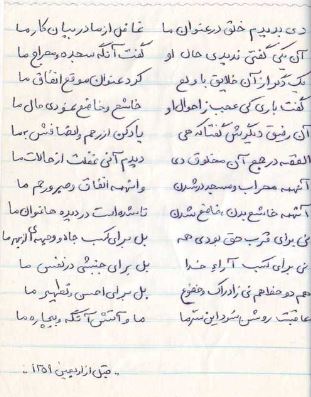 دی بدیدم خلق در عنوان ما غافل از ما در بیان کار ما
آن یکی گفتی ندیدی حال او گفت آنگه سجده و معراج ما
یک دگر از آن خلایق با کرد عنوان موقع انفاق ما
گفت باری کی عجب ز احوال او خاشع و خاضع بدی حال ما
آن رفیق دیگرش گفتا که هی یاد کن از رحم و انصافش به ما
القصه در جمع آن مخلوق دی دیدم آنی غفلت از حالات ما
آنهمه محراب و مسجد در شدن و آنهمه انفاق و صبر و رحم ما
آنهمه خاشع بدن خاضع شدن تا شده است در دیده جانان ما
نی برای قرب حق بودی همه بل برای کسب جاه و بهر ما
نی برای کسب آراء خدا بل برای جنبشی در نفس ما
هم دو خواهم نی ز ادراک و خضوع بل برای احسن ما
عاقبت روشن شود این سر ما ما و آتش آنگه و بیچاره ما
قبل از اربعین ۱۳۵۱